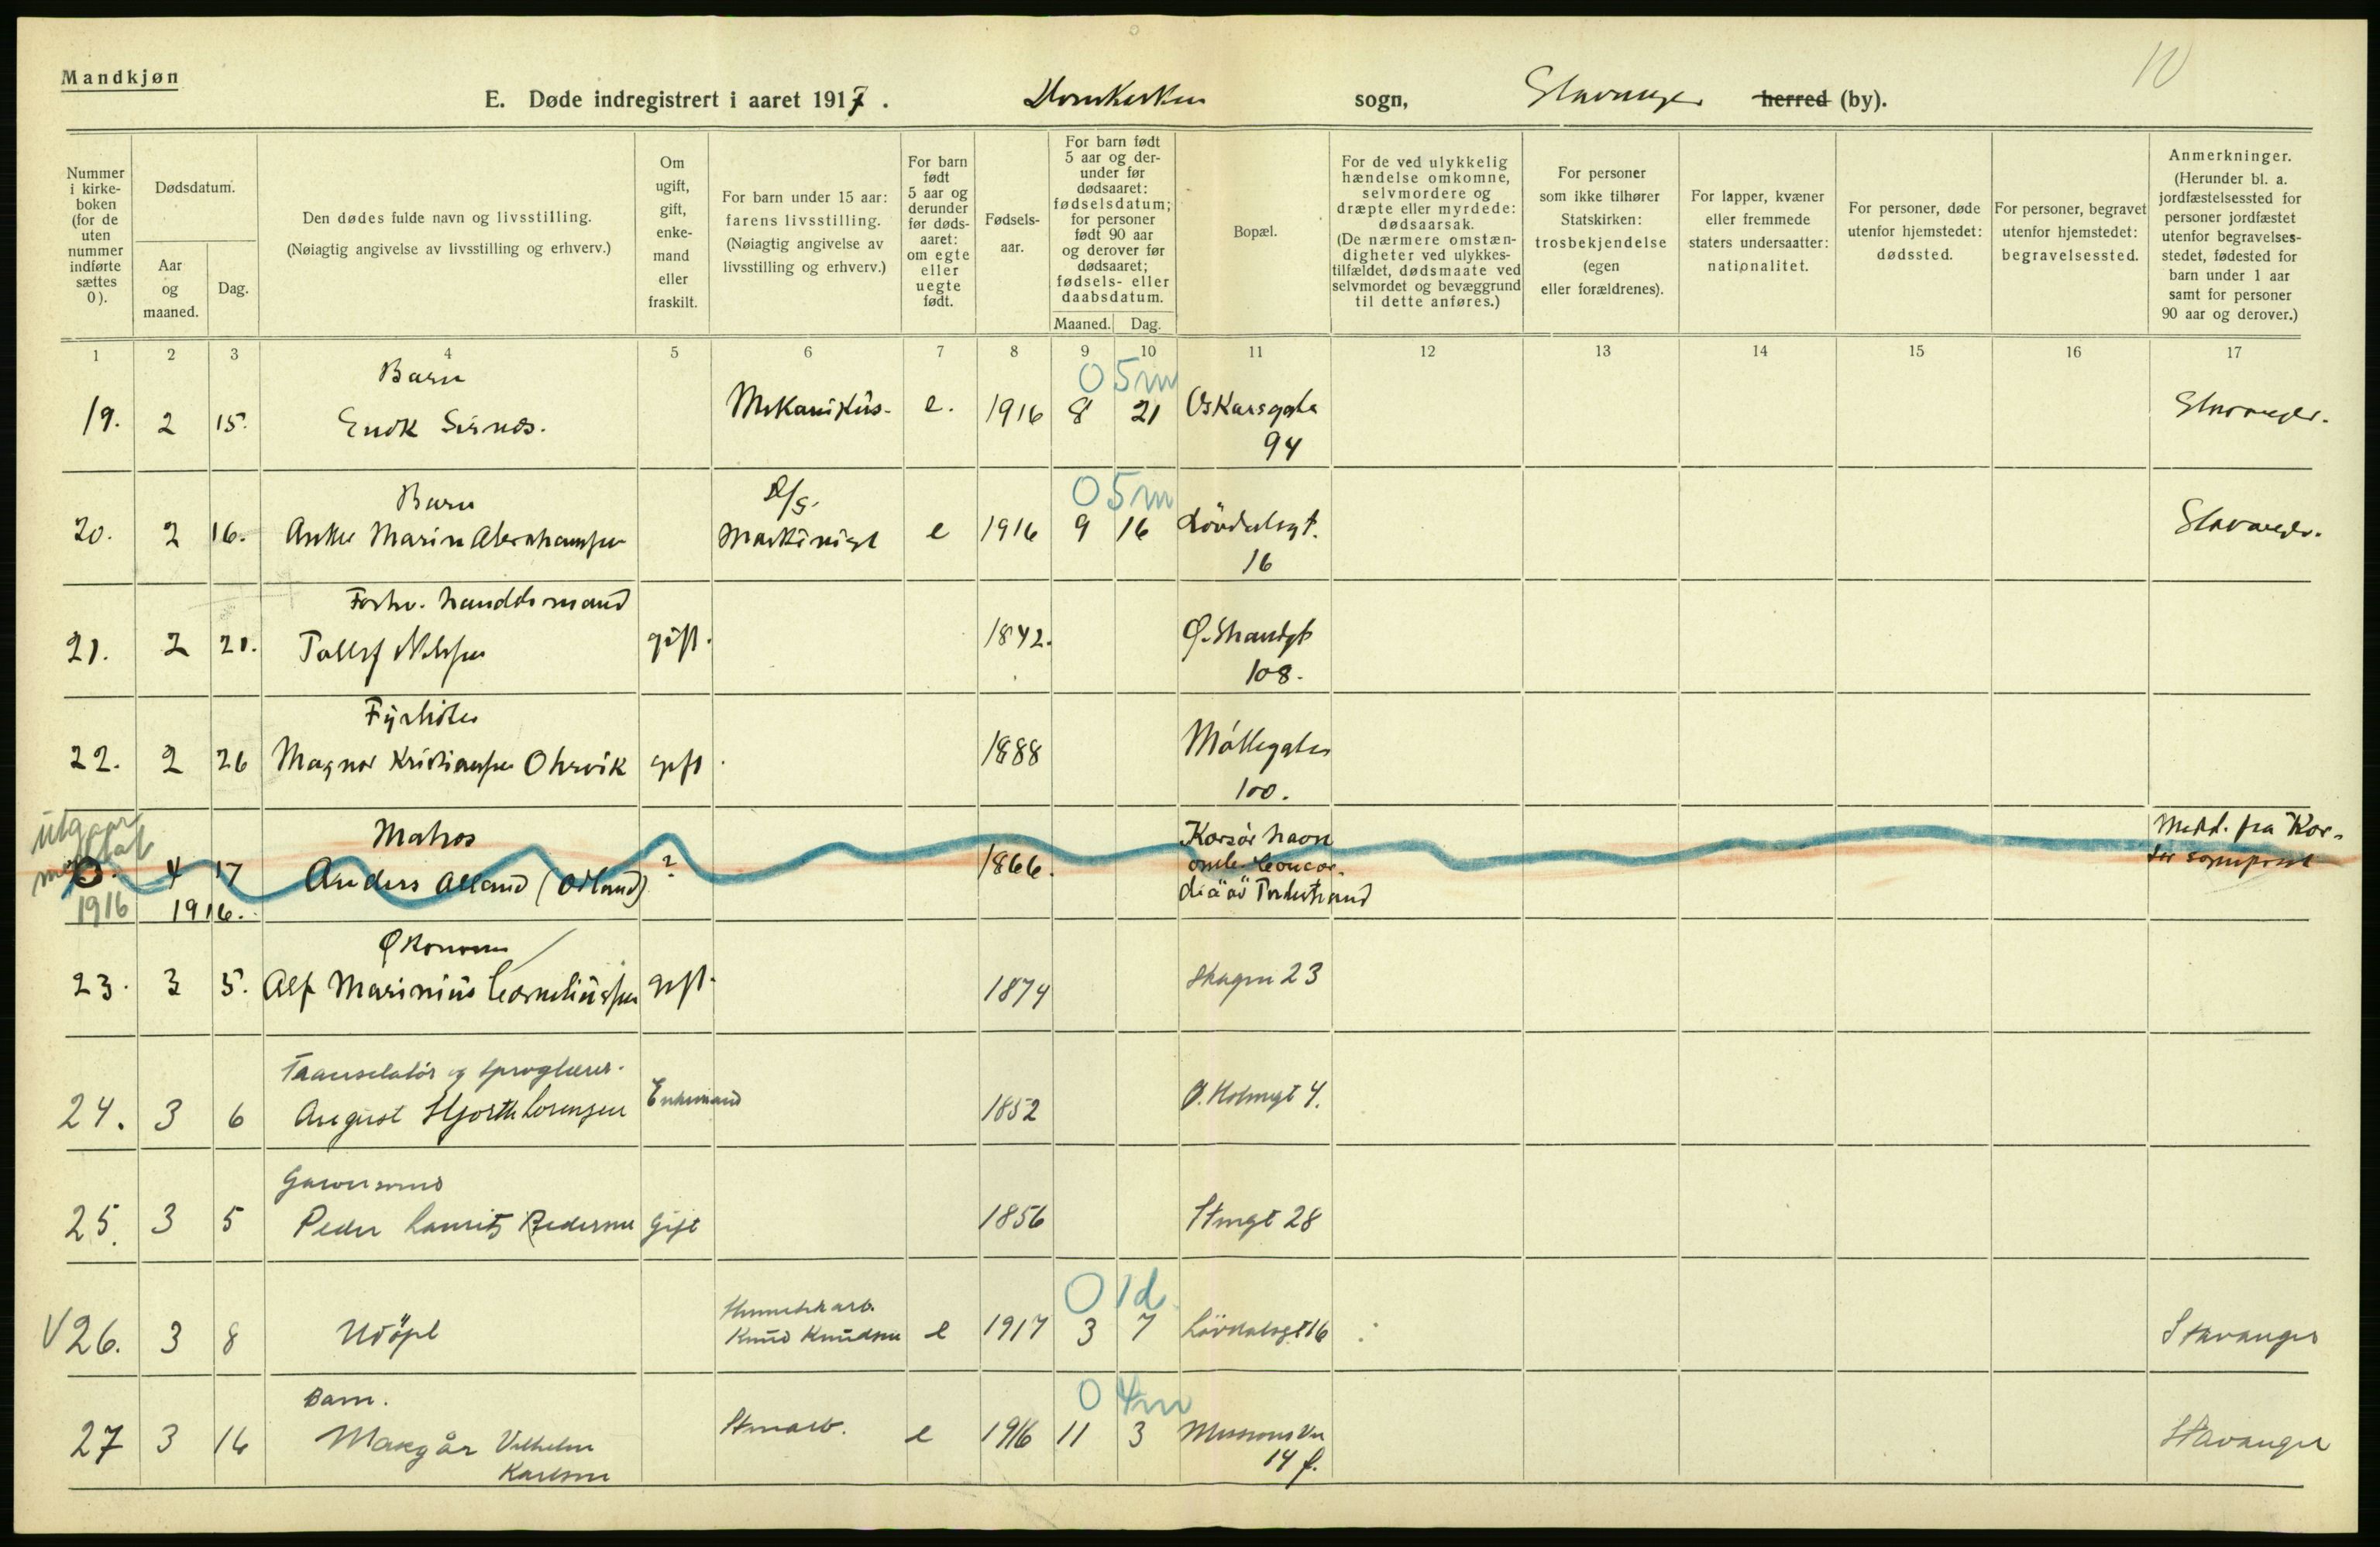 10
Mandkjøn
E. Døde indregistrert i aaret 1917. Domkirken sogn, Stavanger herred (by).
Nummer i kirke- boken (for de uten nummer indførte sættes 0).
Dødsdatum.
Aar og maaned.
Dag.
Den dødes fulde navn og livsstilling.
(Nøiagtig angivelse av livsstilling og erhverv.)
Om ugift, gift, enke- mand eller fraskilt.
For barn under 15 aar: farens livsstilling.
(Nøiagtig angivelse av livsstilling og erhverv.)
For barn født 5 aar og derunder før døds- aaret: om egte eller uegte født.
Fødsels- aar.
For barn født 5 aar og der- under før dødsaaret: fødselsdatum; for personer født 90 aar og derover før dødsaaret; fødsels- eller daabsdatum.
Maaned. Dag.
Bopæl.
For de ved ulykkelig hændelse omkomne, selvmordere og dræpte eller myrdede: dødsaarsak.
(De nærmere omstæn- digheter ved ulykkes- tilfældet, dødsmaate ved selvmordet og bevæggrund til dette anføres.)
For personer som ikke tilhører Statskirken: trosbekjendelse (egen eller forældrenes).
For lapper, kvæner eller fremmede staters undersaatter: nationalitet.
For personer, døde utenfor hjemstedet: dødssted.
For personer, begravet utenfor hjemstedet: begravelsessted.
Anmerkninger.
(Herunder bl. a. jordfæstelsessted for personer jordfæstet utenfor begravelses- stedet, fødested for barn under 1 aar samt for personer 90 aar og derover.)
1 2 3 4 5 6 7 8 9 10 11 12 13 14 15 16 17
Barn 0 5m
19. 2 15. Mekanikus- e. 1916 8 21 Oskarsgate Stavanger.
94
Barn 0 5m
20. 2 16. Marin Abrahamsen Maskinist e 1916 9 16 Lövdalsgt. Stavanger.
16
Forhv. handelsmand
21. 2 21. Tollef Nilsen gift. 1842. Ø. Strandgt
108.
Fyrböter
22. 2 26 Magnor Kristiansen Ohrvik gift. 1888 Möllegaten
100.
utgaar
Matros Korsör havn Medd. fra Kor-
0. 4 17 Anders Alland (Odland) ? 1866. ombr. Concor- sör sogneprest
1916 1916. dia av Tvedestrand
Økonom
23. 3 5. Alf Marinius Corneliussen gift. 1874 Skagen 23
Translatör og sproglærer.
24. 3 6 August Hjorth Lorensen Enkemand 1852 Ø. Holmegt 4.
Garversvend
25. 3 5 Peder Laurits Pedersen Gift 1856 Stengt 28
0 1d
V26. 3 8 Udöpt Knud Knudsen e 1917 3 7 Lövdalsgt 16 Stavanger
Barn. 0 4m
27 3 16 Margår Vilhelm Stenarb. e 1916 11 3 Missionsvn Stavanger
Karlsen 14 f.